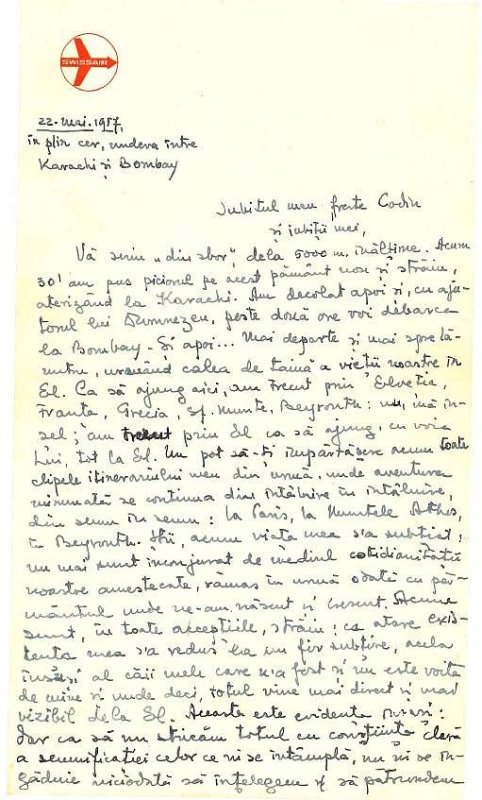 SWISSAIR
22. Mai. 1957,
în plin cer, undeva între
Karachi și Bombay
Iubitul meu frate Codin
și iubiții mei,
Vă scriu „din sbor", dela 5000 m. înălțime. Acum
30' am pus piciorul pe acest pământ nou și străin,
aterizând la Karachi. Am decolat apoi și, cu aju-
torul lui Dumnezeu, peste două ore voi debarca
la Bombay. Și apoi... mai departe și mai spre lă-
untru, urmând calea de taină a vieții noastre în
El. Ca să ajung aici, am trecut prin Elveția,
Franța, Grecia, Sf. Munte, Beyrouth: nu, mă în-
șel; am trecut prin El ca să ajung, cu voia
Lui, tot la El. Nu pot să-ți împărtășesc acum toate
clipele itinerariului meu din urmă, unde aventura
minunată se continua din întâlnire în întâlnire,
din semn în semn: la Paris, la Muntele Athos,
în Beyrouth. Știi, acum viața mea s'a subțiat;
nu mai sunt înconjurat de mediul cotidianității
noastre amestecate, rămas în urmă odată cu pă-
mântul unde ne-am născut și crescut. Acum
sunt, în toate accepțiile, străin; ca atare exis-
tența mea s'a redus la un fir subțire, acela
însăși al căii mele care n'a fost și nu este voită
de mine și unde deci, totul vine mai direct și mai
vizibil dela El. Aceasta este evidența însăși:
Iar ca să nu stricăm totul cu conștiința clară
a semnificației celor ce ni se întâmplă, nu ni se în-
găduie niciodată să înțelegem și să pătrundem